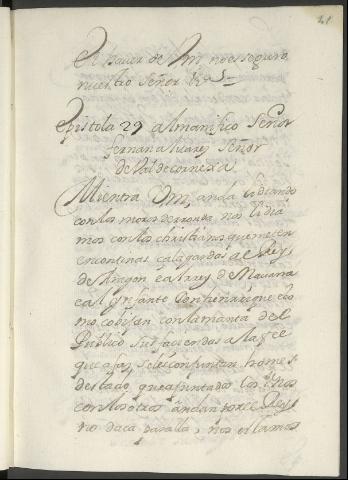 41
El hauer de Vm, no es seguro
nuestro señor &ª
Epistola 29 al manifico Señor
fernan aluarez Señor
de Valdecorneja
Mientra Vm, anda lidiando
con los moros de ronda, nos lidia
mos con los christianos que meten
en contines cada al Rey
de Aragon e al rey de Nauarra
e al ynfante Don henrique co
mo cobijan con la manta de el
Publico sus faciendas a la fee
que a fa se le conjuntan homes
de stado, que ajuntados los
con los otros andan por el Rey
no daca para lla, nos estamos